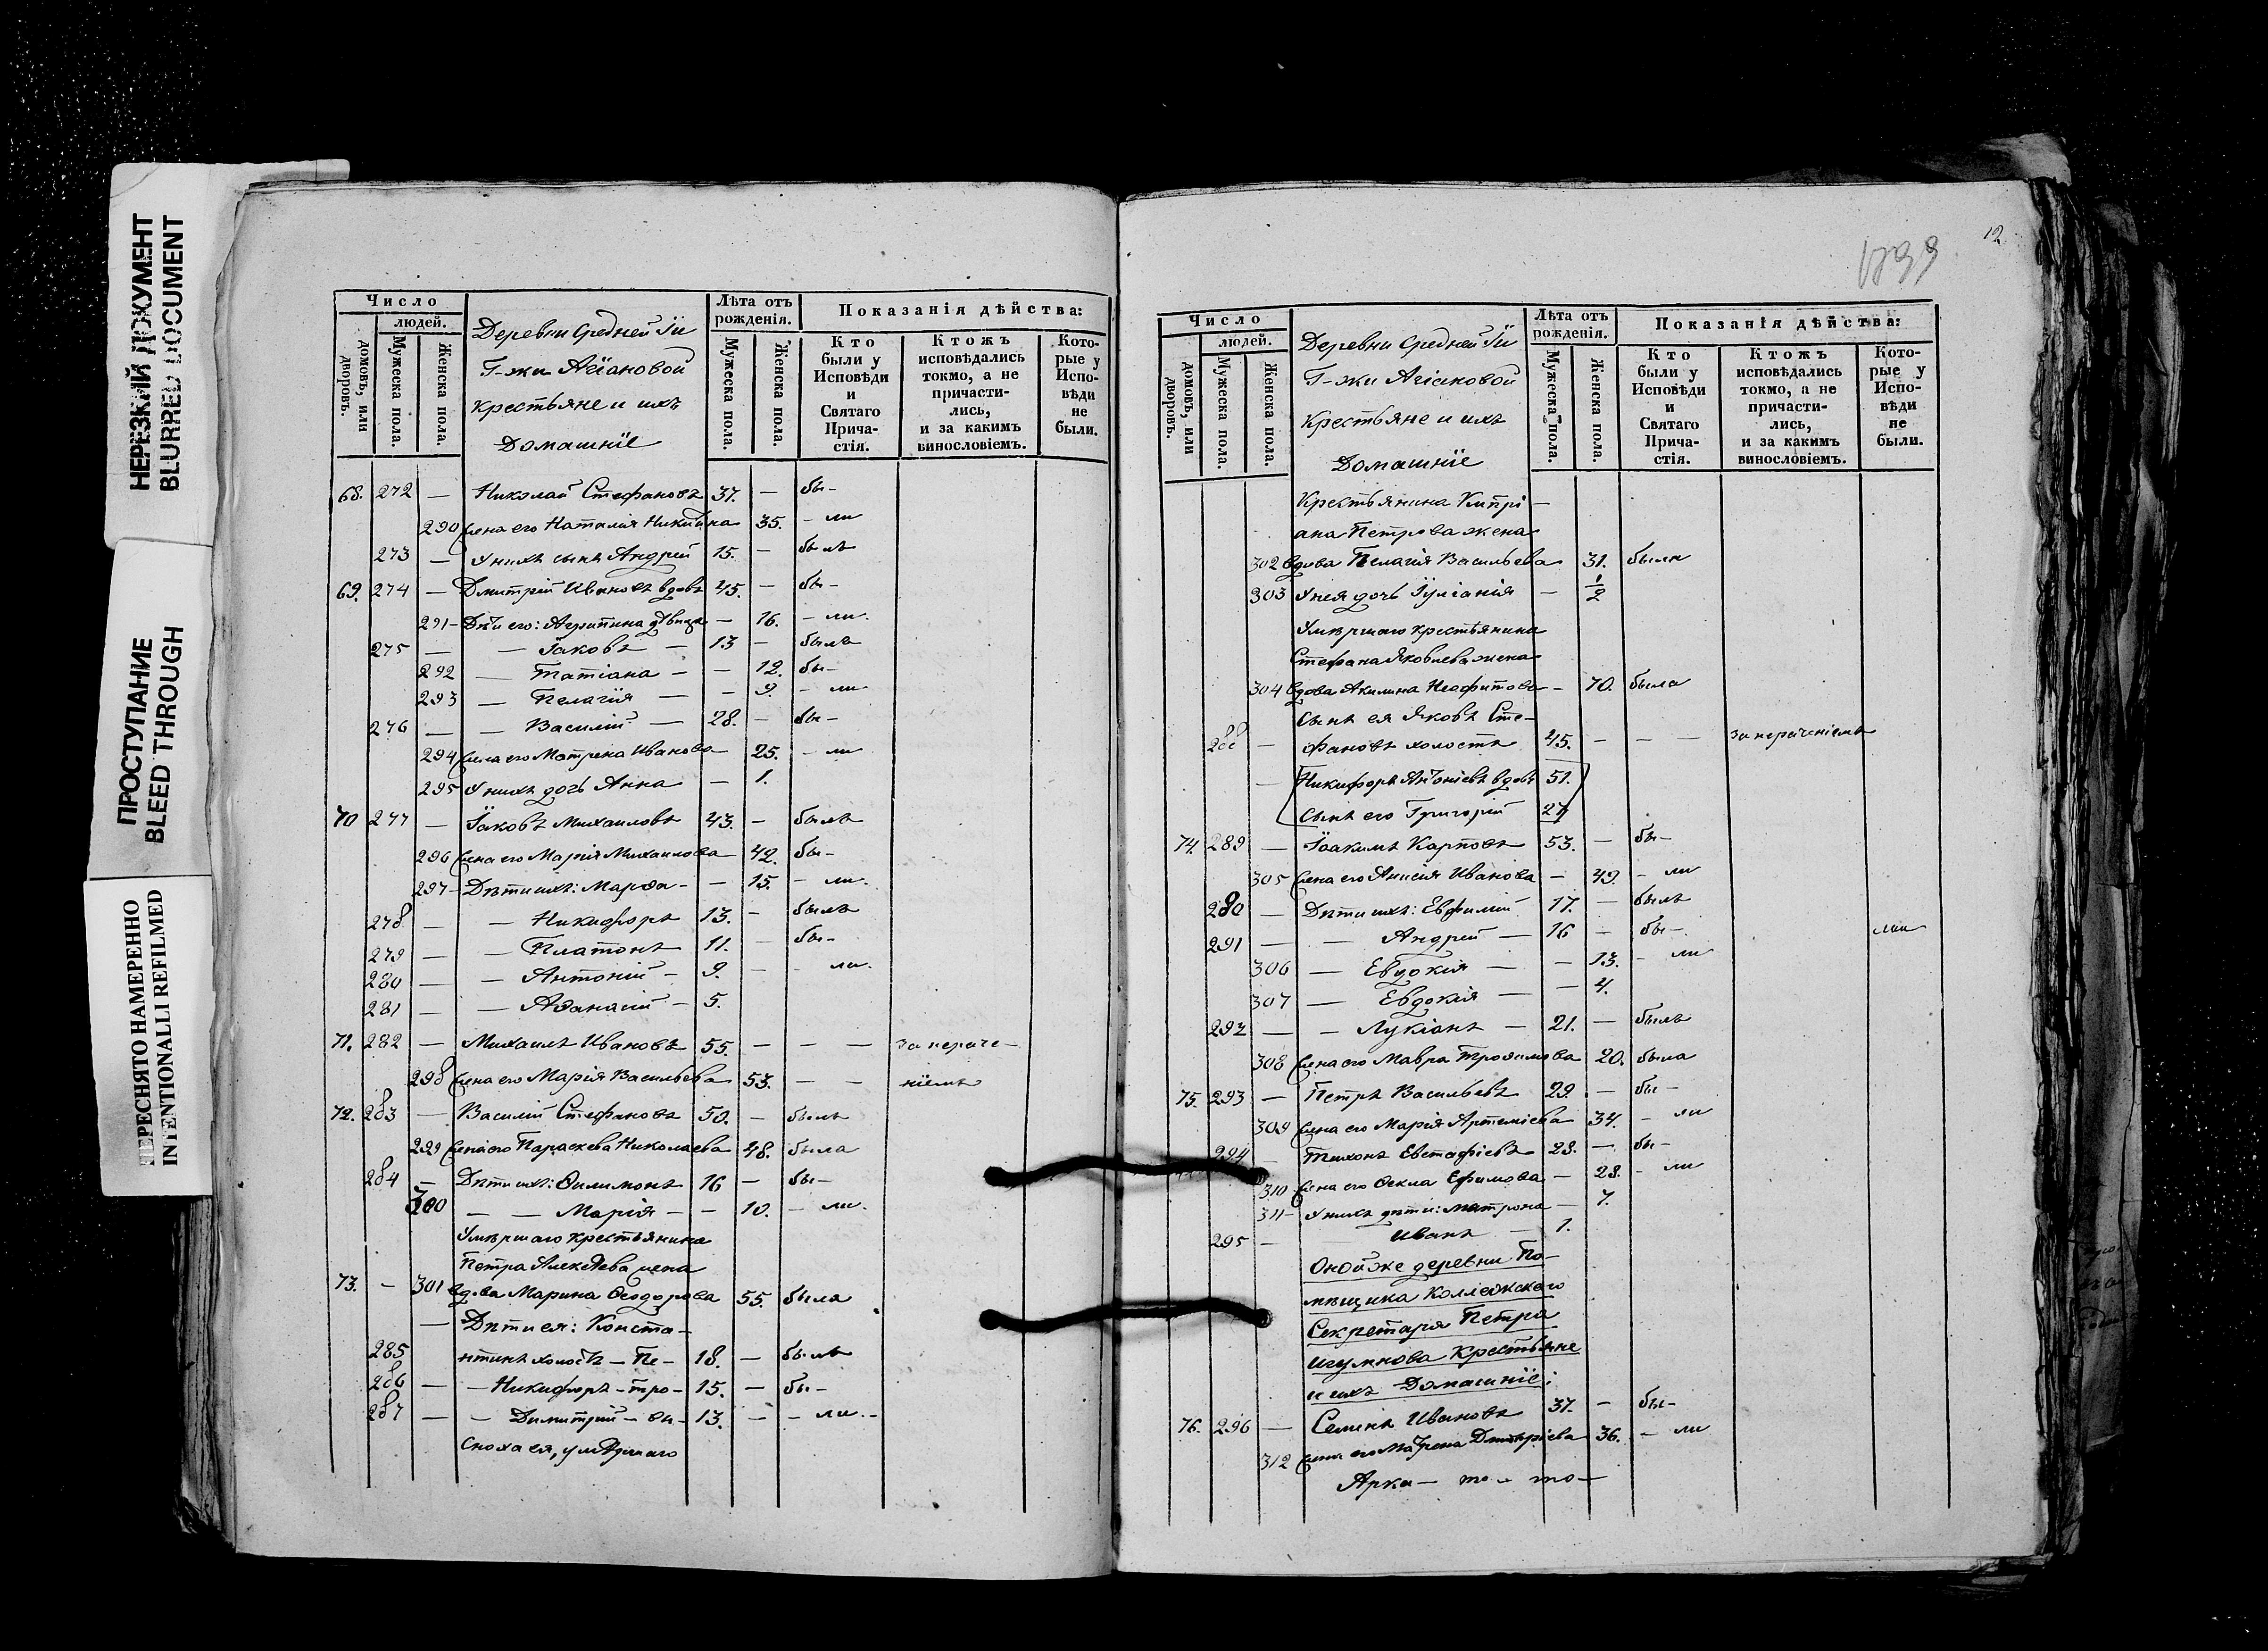 НЕРЕЗКИЙ ДОКУМЕНТ
BLURRED DOCUMENT
ПРОСТУПАНИЕ
BLEED THROUGH
ПЕРЕСНЯТО НАМЕРЕННО
INTENTIONALLI REFILMED
Число
людей.
домовъ, или дворовъ.
Мужеска пола.
Женска пола.
Деревни Средней Iи
Г-жи Агiановой
крестьяне и ихъ
Домашнiе
Лѣта отъ рожденiя.
Мужеска пола.
Женска пола.
Показанiя дѣйства:
Кто были у Исповѣди и Святаго Прича-стiя.
Ктожъ исповѣдались токмо, а не причасти-лись, и за какимъ винословiемъ.
Кото-рые у Испо-вѣди не были.
68. 272 — Николай Стефановъ 37. — бы-
290 Жена его Наталiя Никитина 35. - ли
273 — У нихъ сынъ Андрей 15. — былъ
69. 274 — Дмитрiй Ивановъ вдовъ 45. — бы-
291 - Дѣти его: Агрипина дѣвица — 16. - ли.
275 — — Iаковъ — 13 — былъ
292 — Татiана — — 12. бы-
293 — Пелагiя — — 9. - ли
276 — — Василiй — 28. — бы-
294 Жена его Матрена Иванова — 25. - ли
295 У нихъ дочь Анна — 1.
70 277 — Iаковъ Михаиловъ 43. — былъ
296 Жена его Марiя Михаилова 42. бы-
297 - Дѣти ихъ: Марѳа - — 15. - ли.
278 — — Никифоръ 13. — былъ
279 — — Платонъ 11. — бы-
280 — — Антонiй - 9. — - ли.
281 — — Аѳанасiй - 5.
71. 282 — Михаилъ Ивановъ 55. — — — за нераче-
298 Жена его Марiя Васильева 53. — — нiемъ
72. 283 — Василiй Стефановъ 50. — былъ
299 Жена его Параскева Николаева 48. была
284 — Дѣти ихъ: Филимонъ 16 — бы-
300 — — Марiя — — 10. - ли.
Умѣршаго крестьянина
Петра Алексѣева жена
73. — 301 вдова Марина Ѳеодорова 55. была
— Дѣти ея: Конста-
285 нтинъ холостъ - Пе- 18. — былъ
286 — — Никифоръ - тро- 15. — бы-
287 — — Димитрiй - вы - 13. — - ли. -
Сноха ея, умѣршаго
12
Число
людей.
домовъ, или дворовъ.
Мужеска пола.
Женска пола.
Деревни Средней Iи
Г-жи Агiановой
Крестьяне и ихъ
Домашнiе
Лѣта отъ рожденiя.
Мужеска пола.
Женска пола.
Показанiя дѣйства:
Кто были у Исповѣди и Святаго Прича-стiя.
Ктожъ исповѣдались токмо, а не причасти-лись, и за какимъ винословiемъ.
Кото-рые у Испо-вѣди не были.
Крестьянина Кипрi —
ана Петрова жена
302 вдова Пелагiя Васильева 31. была
303 У нея дочь Iулiанiя — 1/2
Умѣршаго крестьянина
Стефана Яковлева жена
304 вдова Акилина Неофитова — 70. была
Сынъ ея Яковъ Сте-
288 — фановъ холостъ 45. — — — за нераченiемъ
— Никифоръ Антонiевъ вдовъ 51.
Сынъ его Григорiй 27
74. 289 — Iоакимъ Карповъ 53. — бы-
305 Жена его Анисiя Иванова — 49. - ли
290 — Дѣти ихъ: Евфимiй 17. — былъ
291 — — Андрей — 16 — бы-. ли
306 — Евдокiя — — 13. - ли
307 — Евдокiя — — 4.
292 — — Лукiанъ — 21. — былъ
308 Жена его Мавра Трофимова 20. была
75. 293 — Петръ Васильевъ 29. — бы-
309 Жена его Марiя Артемiева 34. - ли
294 Тихонъ Евстафiевъ 28. — бы-
310 Жена его Ѳекла Ефимова — 28. - ли
311 - У нихъ дѣти: матрона — 7.
295 — Иванъ — 1.
Оной же деревни По-
мѣщика Коллежскаго
Секретаря Петра
Игумнова Крестьяне
и ихъ Домашнiе:
76. 296 — Семенъ Ивановъ 37. — бы-
312 Жена его Матрена Дмитрiева 36. - ли